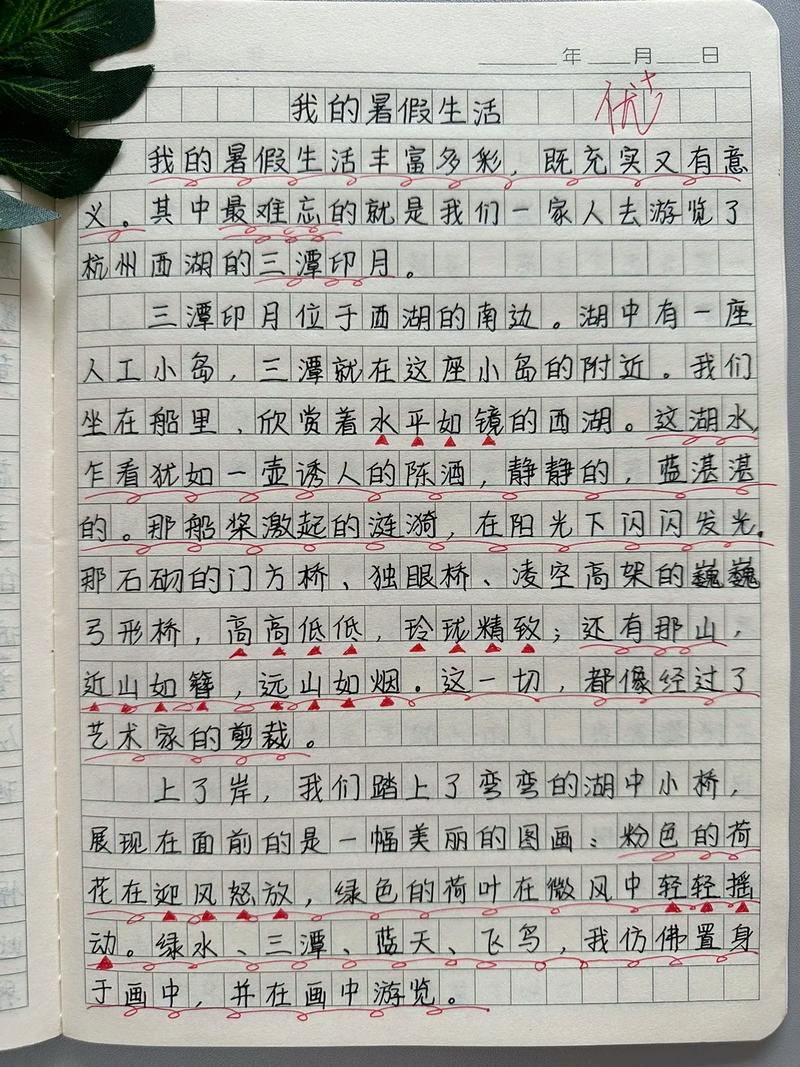 年 月 日
我的暑假生活
优+
我的暑假生活丰富多彩，既充实又有意
义。其中最难忘的就是我们一家人去游览了
杭州西湖的三潭印月。
三潭印月位于西湖的南边。湖中有一座
人工小岛，三潭就在这座小岛的附近。我们
坐在船里、欣赏着水平如镜的西湖。这湖水，
乍看犹如一壶诱人的陈酒，静静的，蓝湛湛
的。那船桨激起的涟漪，在阳光下闪闪发光。
那石砌的门方桥、独眼桥、凌空高架的巍巍
弓形桥，高高低低，玲珑精致；还有那山，
近山如簪，远山如烟。这一切，都像经过了
艺术家的剪裁。
上了岸，我们踏上了弯弯的湖中小桥，
展现在面前的是一幅美丽的图画：粉色的荷
花在迎风怒放，绿色的荷叶在微风中轻轻摇
动。绿水、三潭、蓝天、飞鸟，我仿佛置身
于画中，并在画中游览。